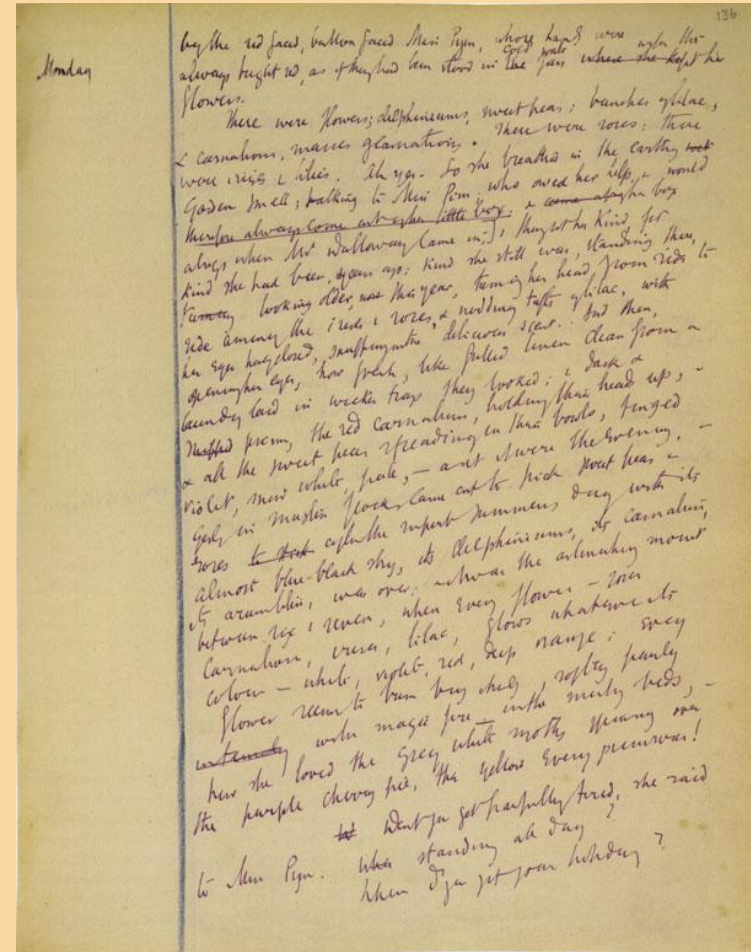 136
Monday
by the red faced, button faced Miss Pym, whose hands were
always bright red, as if they had been stood in cold water with the
flowers.
There were flowers; delphiniums, sweet peas; bunches of lilac,
& carnations, masses of carnations. There were roses; there
were irises & lilies. Ah yes. So she breathed in the earthy
garden smell; talking to Miss Pym, who owed her help, & would
therefore always come out of her little box.
always when Mrs Dalloway came in; thought her kind for
kind she had been, years ago; kind she still was, standing there,
looking older, this year, turning her head from side to
side among the irises & roses, & nodding tufts of lilac, with
her eyes half closed, snuffing in the delicious scent. And then,
opening her eyes, how fresh, like frilled linen clean from a
laundry laid in wicker trays they looked; & dark &
prim, the red carnations, holding their heads up, –
& all the sweet peas spreading in their bowls, tinged
violet, snow white, pale, – as if it were the evening, –
girls in muslin frocks came out to pick sweet peas &
roses after the superb summers day with its
almost blue-black sky, its delphiniums, its carnations,
its, was over; & it was the moment
between six & seven, when every flower – roses
carnations, irises, lilac, glows whatever its
colour – white, violet, red, deep orange; every
flower seems to burn by itself, softly, purely
with magic fire – in the misty beds, –
how she loved the grey white moths spinning over
the purple cherry pie, the yellow evening primroses!
Don't you get frightfully tired, she said
to Miss Pym. standing all day?
When d'you get your holiday?